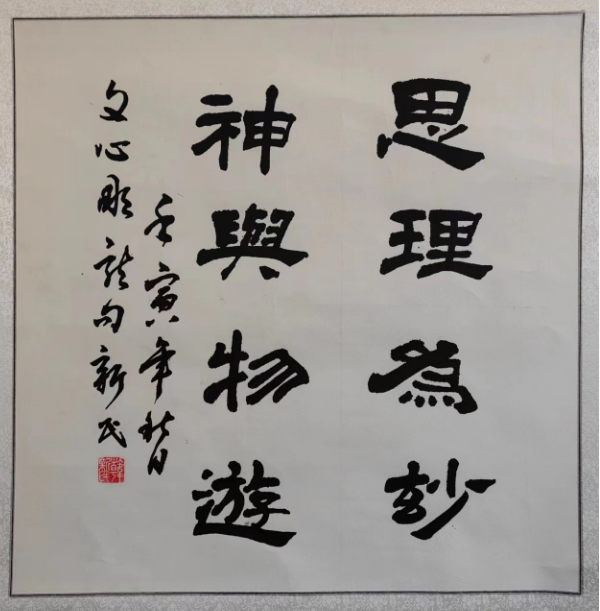 思理為妙
神與物遊
壬寅年秋日
文心雕龍句新民